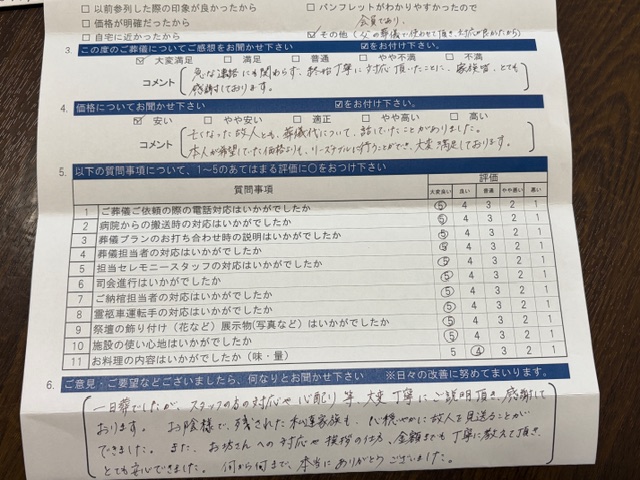 □ 以前参列した際の印象が良かったから □ パンフレットがわかりやすかったので
□ 価格が明確だったから 会員であり、
□ 自宅に近かったから ☑ その他(父の葬儀で使わせて頂き、対応が良かったから)
3. この度のご葬儀についてご感想をお聞かせ下さい ☑をお付け下さい。
☑ 大変満足 □ 満足 □ 普通 □ やや不満 □ 不満
コメント 急な連絡にも関わらず、終始丁寧に対応頂いたことに、家族皆、とても
感謝しております。
4. 価格についてお聞かせ下さい ☑をお付け下さい。
☑ 安い □ やや安い □ 適正 □ やや高い □ 高い
コメント 亡くなった故人とも、葬儀代について、話していたことがありました。
本人が希望していた価格よりも、リーズナブルに行うことができ、大変満足しております。
5. 以下の質問事項について、1~5のあてはまる評価に○をおつけ下さい
質問事項 評価
大変良い 良い 普通 やや悪い 悪い
1 ご葬儀ご依頼の際の電話対応はいかがでしたか ⑤ 4 3 2 1
2 病院からの搬送時の対応はいかがでしたか ⑤ 4 3 2 1
3 葬儀プランのお打ち合わせ時の説明はいかがでしたか ⑤ 4 3 2 1
4 葬儀担当者の対応はいかがでしたか ⑤ 4 3 2 1
5 担当セレモニースタッフの対応はいかがでしたか ⑤ 4 3 2 1
6 司会進行はいかがでしたか ⑤ 4 3 2 1
7 ご納棺担当者の対応はいかがでしたか ⑤ 4 3 2 1
8 霊柩車運転手の対応はいかがでしたか ⑤ 4 3 2 1
9 祭壇の飾り付け(花など)展示物(写真など)はいかがでしたか ⑤ 4 3 2 1
10 施設の使い心地はいかがでしたか ⑤ 4 3 2 1
11 お料理の内容はいかがでしたか(味・量) 5 ④ 3 2 1
6. ご意見・ご要望などございましたら、何なりとお聞かせ下さい ※日々の改善に努めてまいります。
一日葬でしたが、スタッフの方の対応や心配り等、大変丁寧にご説明頂き、感謝して
おります。 お陰様で、残された私達家族も、心穏やかに故人を見送ることが
できました。 また、お坊さんへの対応や挨拶の仕方、金額までも丁寧に教えて頂き、
とても安心できました。 何から何まで、本当にありがとうございました。